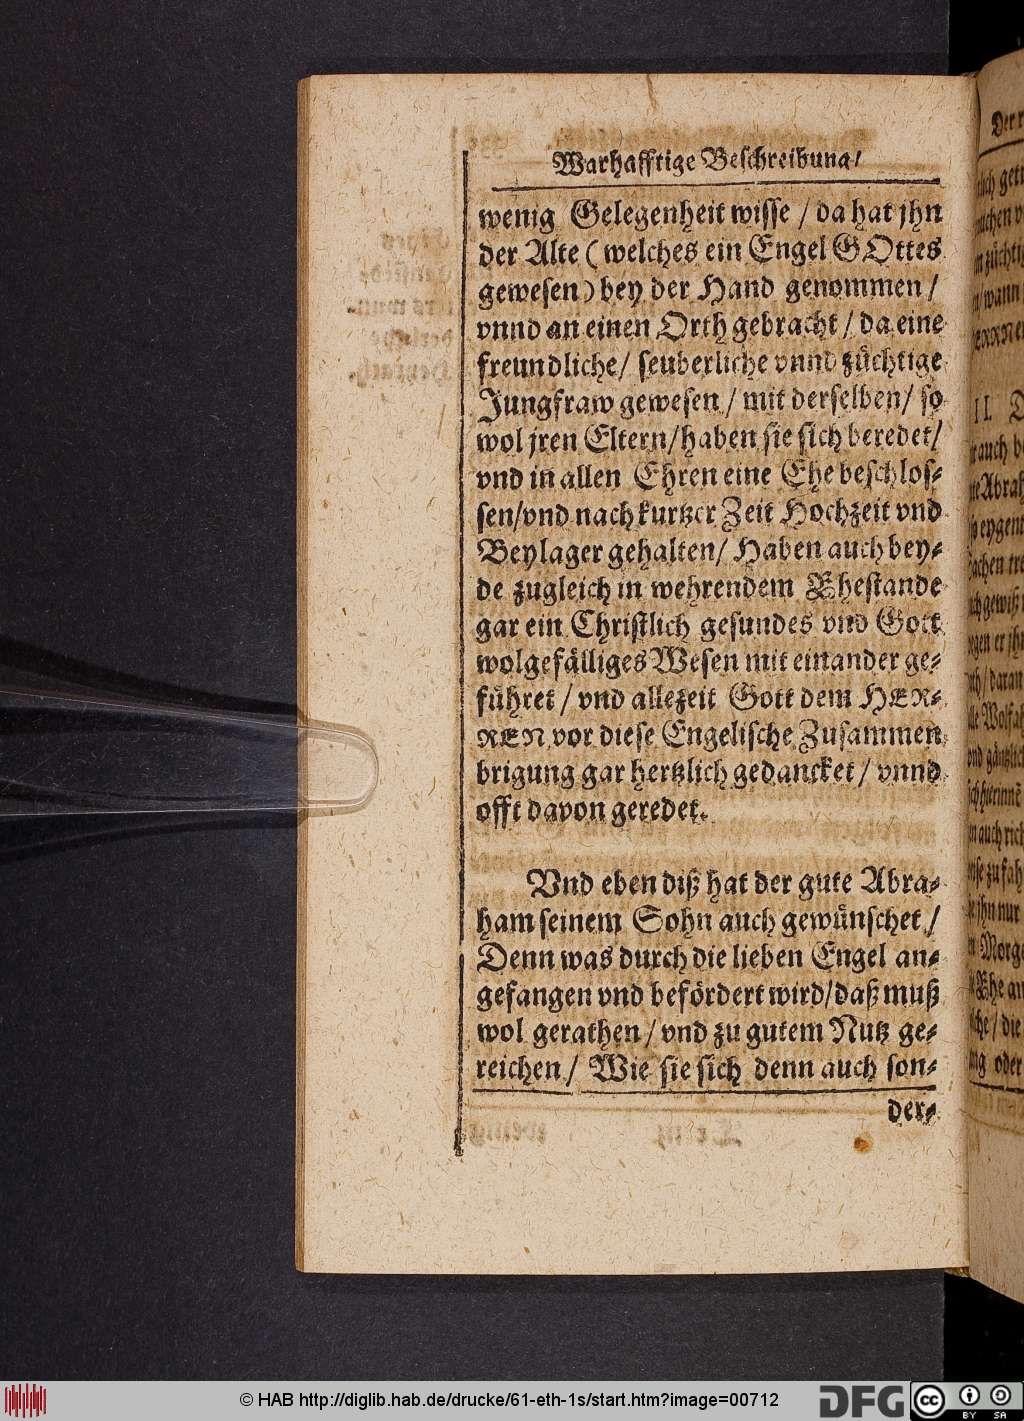 Warhafftige Beschreibung/
wenig Gelegenheit wisse / da hat jhn
der Alte ( welches ein Engel GOttes
gewesen ) bey der Hand genommen /
vnnd an einen Orth gebracht / da eine
freundliche/ seuberliche vnnd züchtige
Jungfraw gewesen / mit derselben/ so
wol jren Eltern/haben sie sich beredet/
vnd in allen Ehren eine Ehe beschlos-
sen/vnd nach kurtzer Zeit Hochzeit vnd
Beylager gehalten/ Haben auch bey-
de zugleich in wehrendem Ehestande
gar ein Christlich gesundes vnd Gott
wolgefälliges Wesen mit einander ge-
führet / vnd allezeit Gott dem HER-
REN vor diese Engelische Zusammen
brigung gar hertzlich gedancket / vnnd
offt davon geredet.
Vnd eben diß hat der gute Abra-
ham seinem Sohn auch gewünschet /
Denn was durch die lieben Engel an-
gefangen vnd befördert wird/daß muß
wol gerathen / vnd zu gutem Nutz ge-
reichen / Wie sie sich denn auch son-
der-
© HAB http://diglib.hab.de/drucke/61-eth-1s/start.htm?image=00712
DFG
cc
BY SA